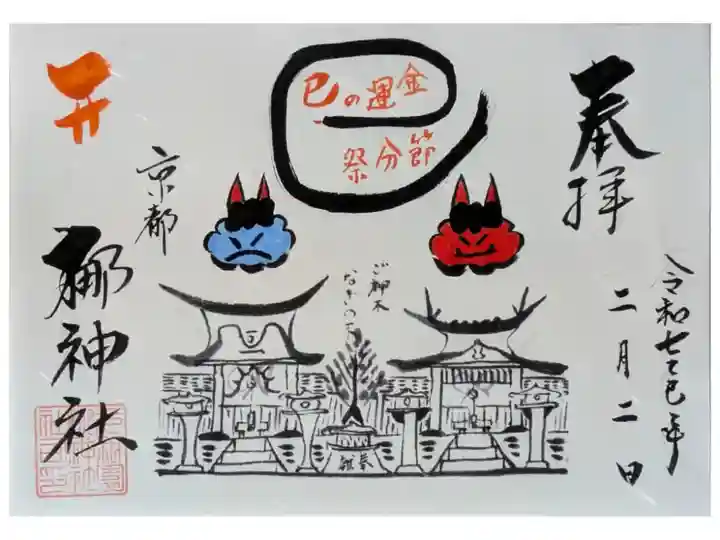 奉拝
令和七乙巳年
二月二日
金運の巳
節分祭
ご神木
なぎの木
奉献
京都
梛神社